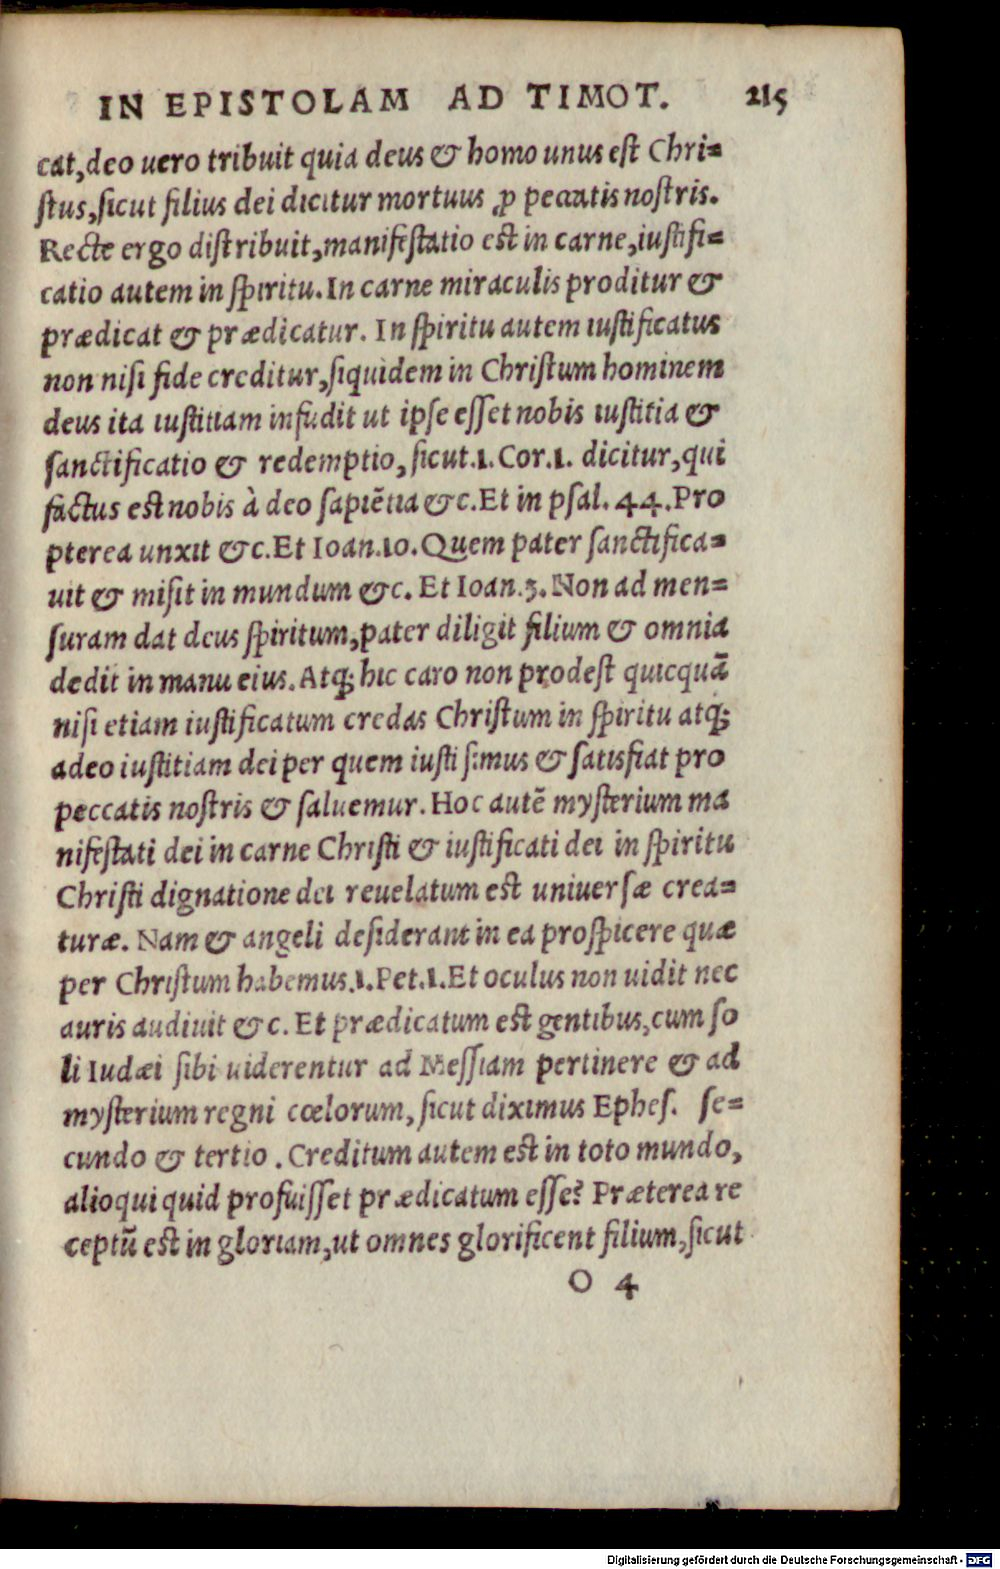 IN EPISTOLAM AD TIMOT. 215
cat, deo uero tribuit quia deus & homo unus est Chri=
stus, sicut filius dei dicitur mortuus ꝓ peccatis nostris.
Recte ergo distribuit, manifestatio est in carne, iustifi=
catio autem in spiritu. In carne miraculis proditur &
prædicat & prædicatur. In spiritu autem iustificatus
non nisi fide creditur, siquidem in Christum hominem
deus ita iustitiam infudit ut ipse esset nobis iustitia &
sanctificatio & redemptio, sicut.1.Cor.1. dicitur, qui
factus est nobis à deo sapiẽtia &c. Et in psal. 44. Pro
pterea unxit &c. Et Ioan.10. Quem pater sanctifica=
uit & misit in mundum &c. Et Ioan.3. Non ad men=
suram dat deus spiritum, pater diligit filium & omnia
dedit in manu eius. Atq; hic caro non prodest quicquã
nisi etiam iustificatum credas Christum in spiritu atq;
adeo iustitiam dei per quem iusti simus & satisfiat pro
peccatis nostris & saluemur. Hoc autẽ mysterium ma
nifestati dei in carne Christi & iustificati dei in spiritu
Christi dignatione dei reuelatum est uniuersæ crea=
turæ. Nam & angeli desiderant in ea prospicere quæ
per Christum habemus.1.Pet.1. Et oculus non uidit nec
auris audiuit &c. Et prædicatum est gentibus, cum so
li Iudæi sibi uiderentur ad Messiam pertinere & ad
mysterium regni cœlorum, sicut diximus Ephes. se=
cundo & tertio. Creditum autem est in toto mundo,
alioqui quid profuisset prædicatum esse? Præterea re
ceptũ est in gloriam, ut omnes glorificent filium, sicut
O 4
Digitalisierung gefördert durch die Deutsche Forschungsgemeinschaft - DFG